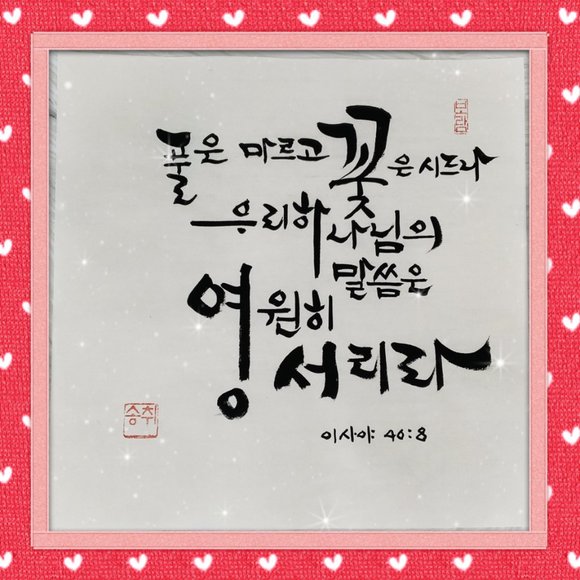 풀은 마르고 꽃은 시드라
우리하나님의
말씀은
영원히
서리라
이사야 40:8
보람
송취